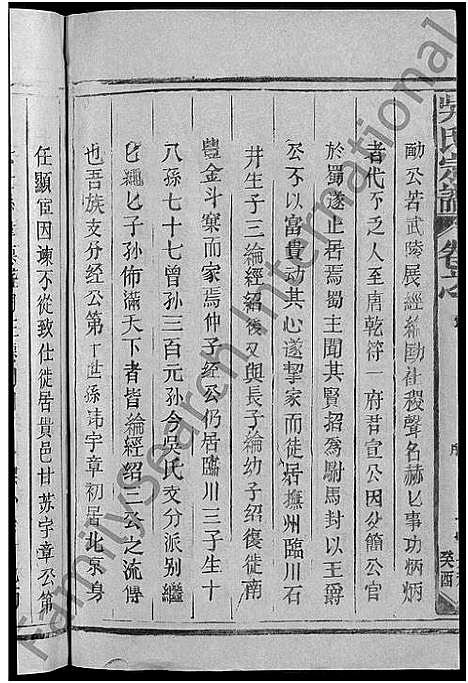 吳氏宗譜
癸酉
勔公若武陵展經綸勛社稷聲名赫匕事功炳炳
者代不乏人至唐乾符一府君宣公因父簡公官
於蜀遂止居焉蜀主聞其賢招為駙馬封以王爵
公不以富貴動其心遂挈家而徒居撫州臨川石
井生子三綸經紹後又與長子綸幼子紹復徙南
豐金斗寨而家焉仲子經公仍居臨川三子生十
八孫七十七曾孫三百元孫今吳氏支分派別繼
匕繩匕子孫佈滿天下者皆綸經紹三公之流傳
也吾族支分经公第十世孫諱宇章初居北泉身
任顯宦因諫不從致仕徙居貴邑甘苏宇章公第
FamilySearch International